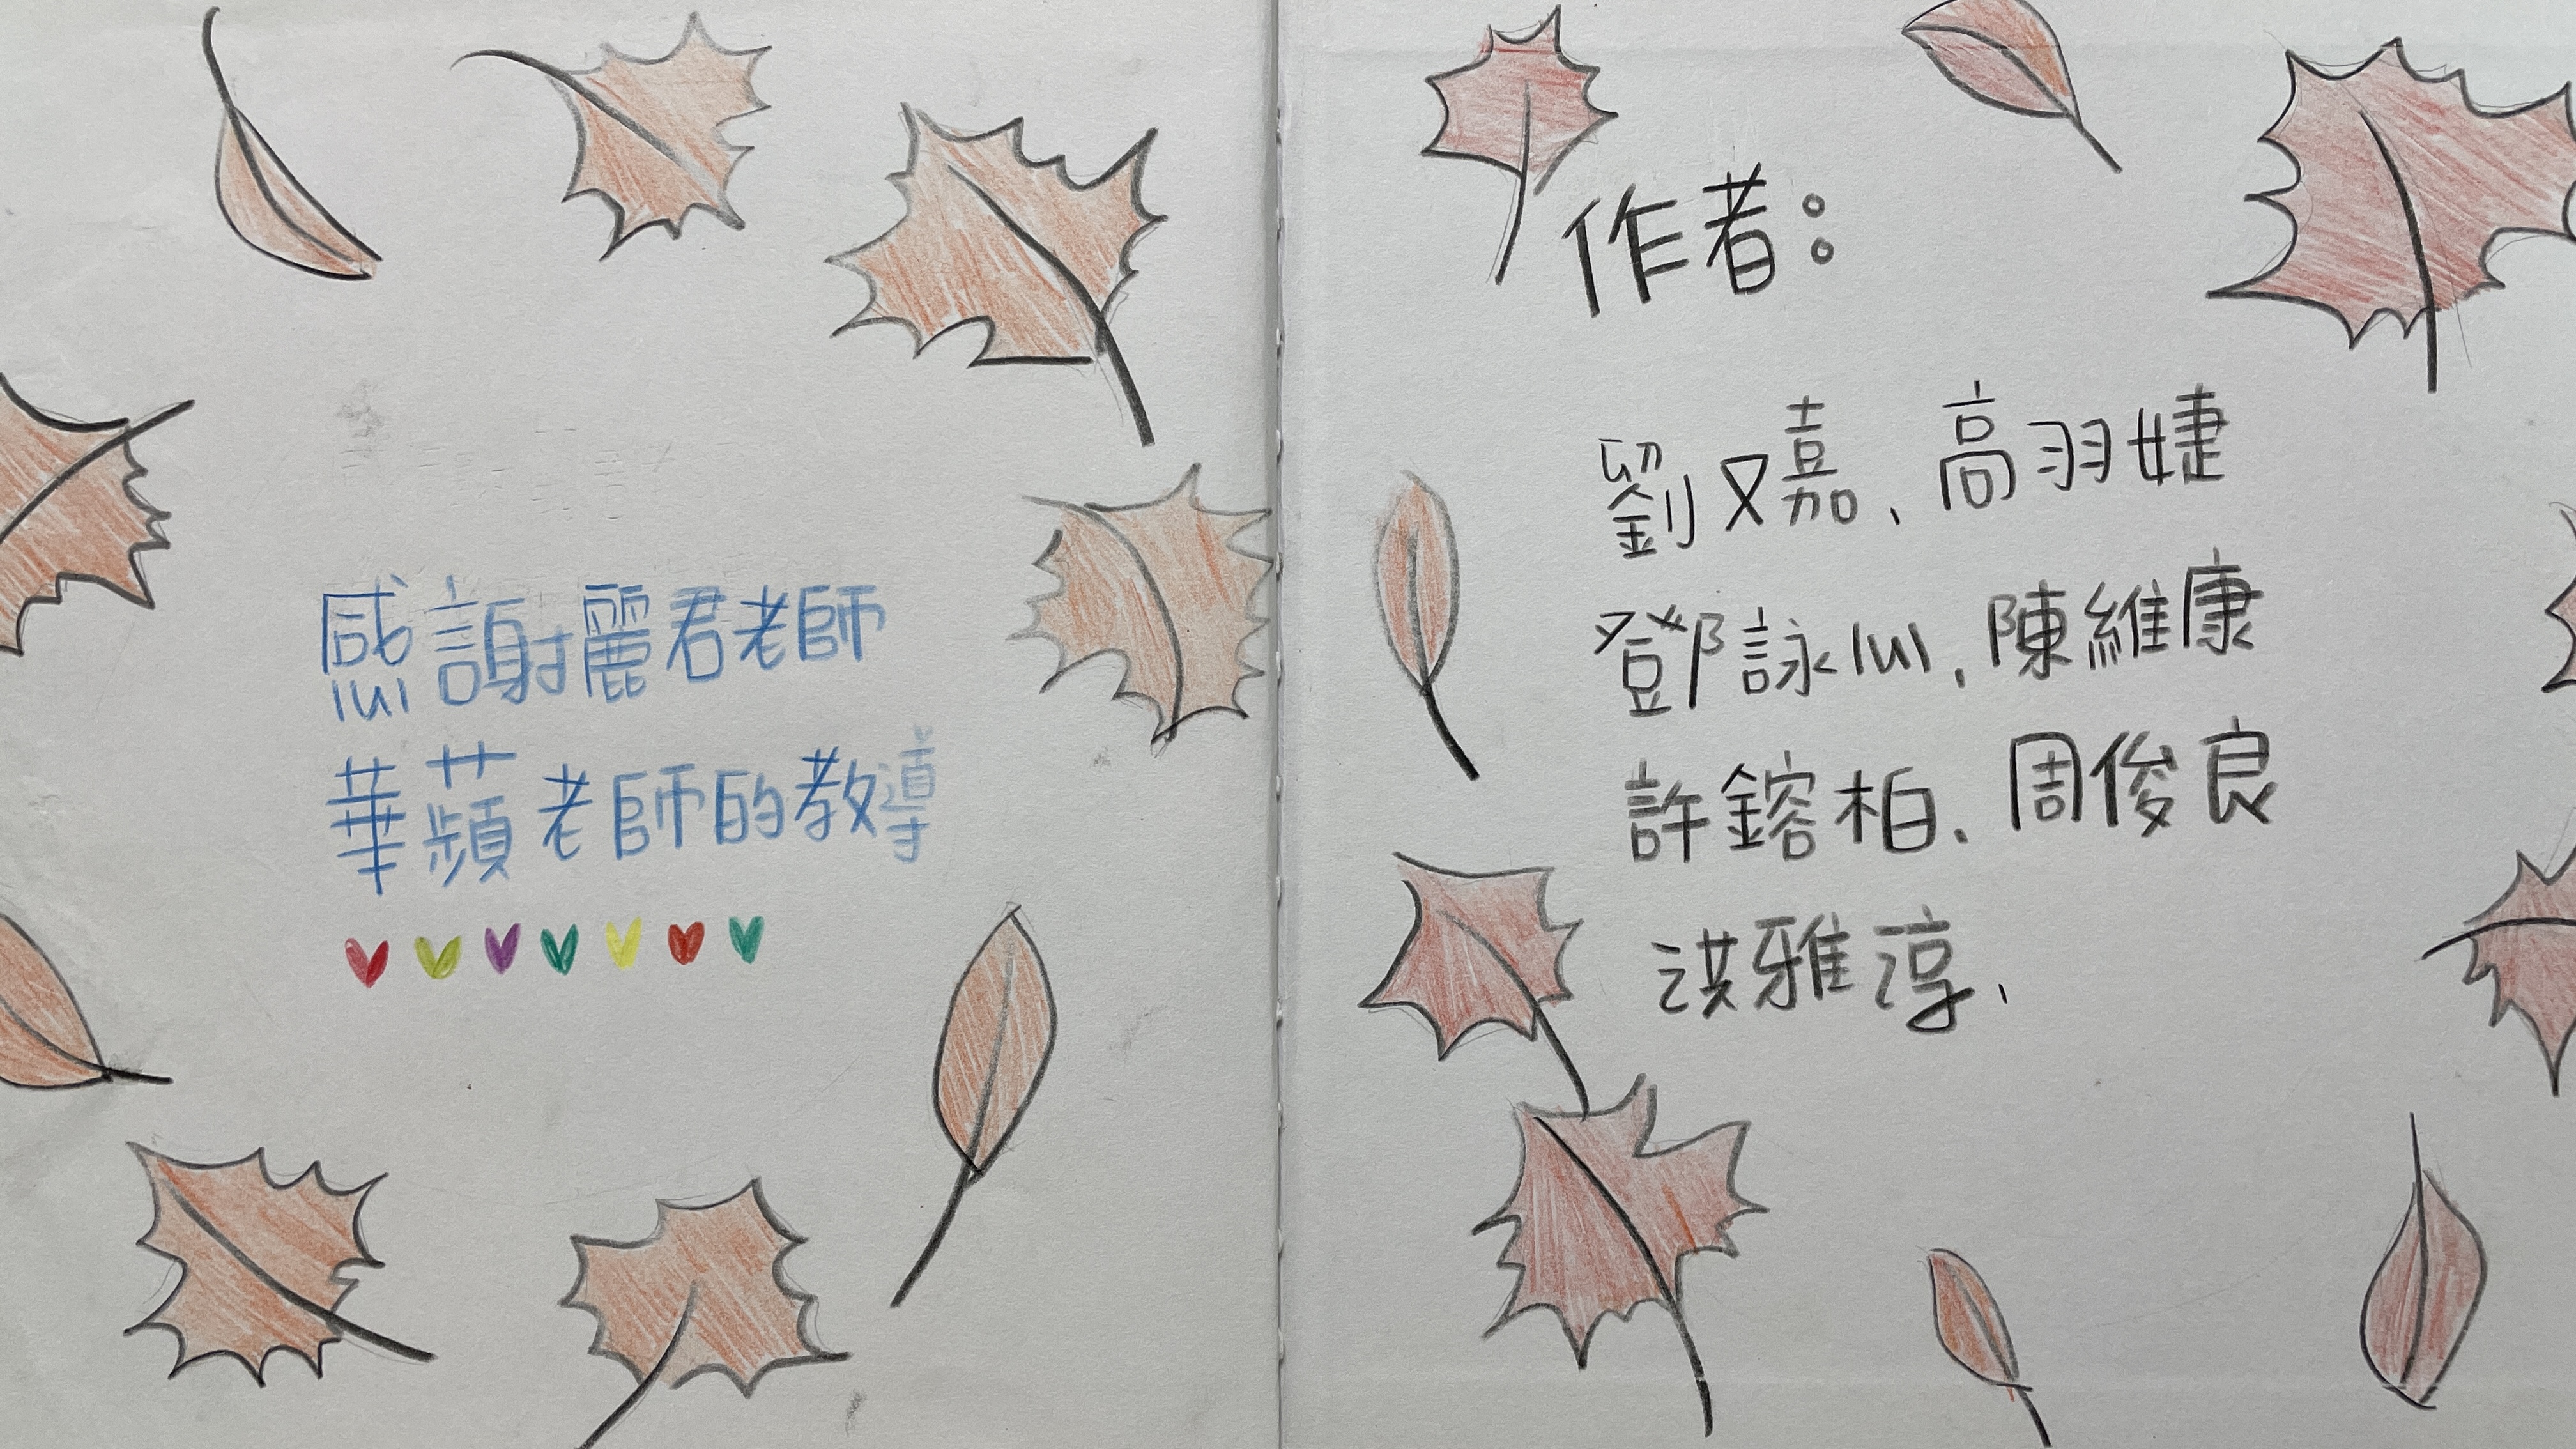 感謝麗君老師
華蘋老師的教導
作者：
劉又嘉、高羽婕
鄧詠心、陳維康
許鎔柏、周俊良
洪雅淳、